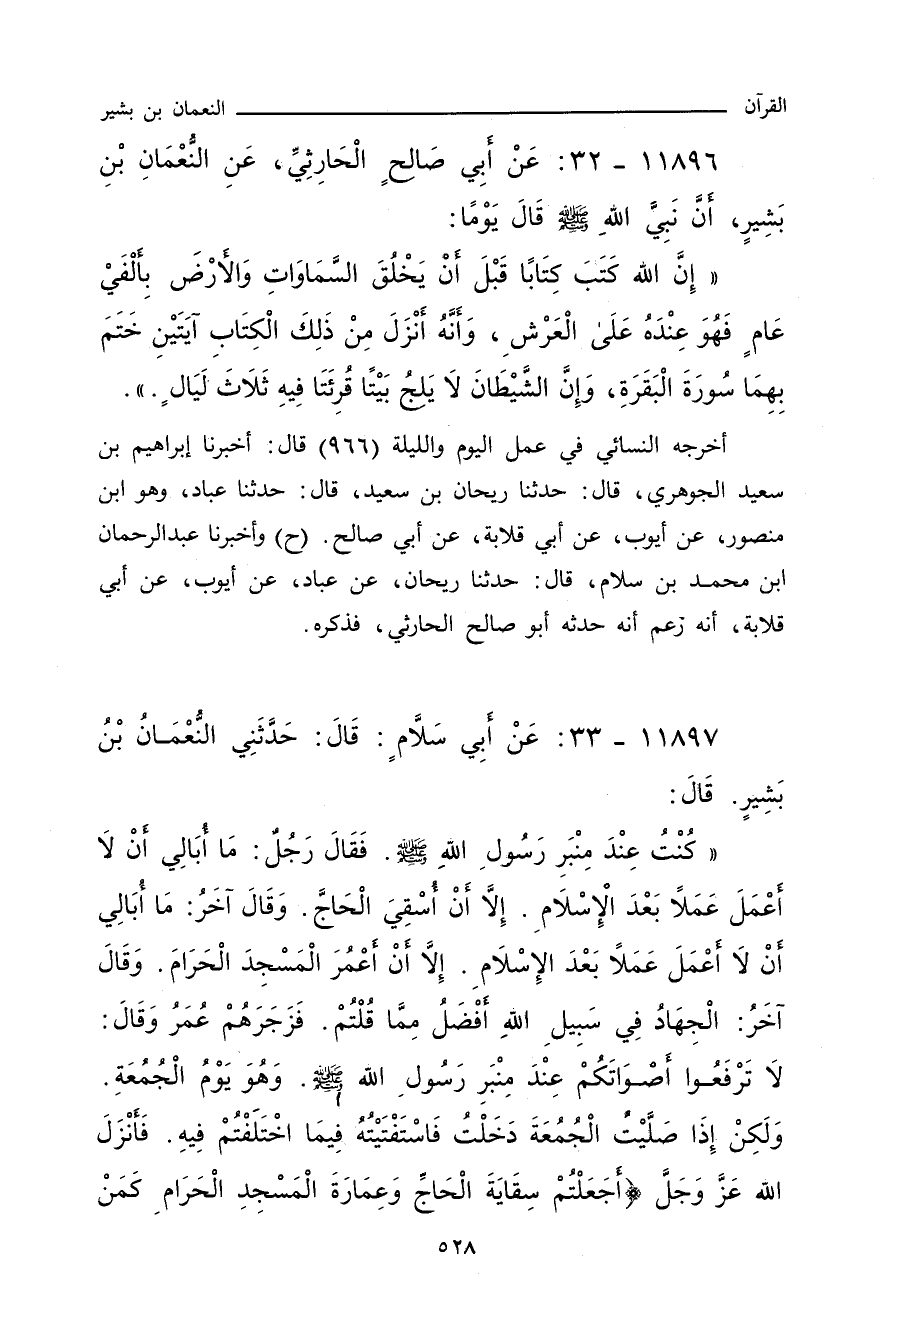 القرآن ــــــ النعمان بن بشير
١١٨٩٦ ـ ٣٢: عَنْ أَبِي صَالِحٍ الْحَارِثِيِّ، عَنِ النُّعْمَانِ بْنِ
بَشِيرٍ، أَنَّ نَبِيَّ اللهِ ﷺ قَالَ يَوْمًا:
« إِنَّ الله كَتَبَ كِتَابًا قَبْلَ أَنْ يَخْلُقَ السَّمَاوَاتِ وَالأَرْضَ بِأَلْفَيْ
عَامٍ فَهُوَ عِنْدَهُ عَلَىٰ الْعَرْشِ، وَأَنَّهُ أَنْزَلَ مِنْ ذَلِكَ الْكِتَابِ آيَتَيْنِ خَتَمَ
بِهِمَا سُورَةَ الْبَقَرَةِ، وَإِنَّ الشَّيْطَانَ لَا يَلِجُ بَيْتًا قُرِئَتَا فِيهِ ثَلَاثَ لَيَالٍ. ».
أخرجه النسائي في عمل اليوم والليلة (٩٦٦) قال: أخبرنا إبراهيم بن
سعيد الجوهري، قال: حدثنا ريحان بن سعيد، قال: حدثنا عباد، وهو ابن
منصور، عن أيوب، عن أبي قلابة، عن أبي صالح. (ح) وأخبرنا عبدالرحمان
ابن محمد بن سلام، قال: حدثنا ريحان، عن عباد، عن أيوب، عن أبي
قلابة، أنه زعم أنه حدثه أبو صالح الحارثي، فذكره.
١١٨٩٧ ـ ٣٣: عَنْ أَبِي سَلَّامٍ: قَالَ: حَدَّثَنِي النُّعْمَانُ بْنُ
بَشِيرٍ. قَالَ:
« كُنْتُ عِنْدَ مِنْبَرِ رَسُولِ اللهِ ﷺ. فَقَالَ رَجُلٌ: مَا أُبَالِي أَنْ لَا
أَعْمَلَ عَمَلًا بَعْدَ الْإِسْلَامِ. إِلَّا أَنْ أُسْقِيَ الْحَاجَّ. وَقَالَ آخَرُ: مَا أُبَالِي
أَنْ لَا أَعْمَلَ عَمَلًا بَعْدَ الإِسْلَامِ. إِلَّا أَنْ أَعْمُرَ الْمَسْجِدَ الْحَرَامَ. وَقَالَ
آخَرُ: الْجِهَادُ فِي سَبِيلِ اللهِ أَفْضَلُ مِمَّا قُلْتُمْ. فَزَجَرَهُمْ عُمَرُ وَقَالَ:
لَا تَرْفَعُوا أَصْوَاتَكُمْ عِنْدَ مِنْبَرِ رَسُولِ الله ﷺ. وَهُوَ يَوْمُ الْجُمُعَةِ.
وَلَكِنْ إِذَا صَلَّيْتُ الْجُمُعَةَ دَخَلْتُ فَاسْتَفْتَيْتُهُ فِيمَا اخْتَلَفْتُمْ فِيهِ. فَأَنْزَلَ
الله عَزَّ وَجَلَّ ﴿أَجَعَلْتُمْ سِقَايَةَ الْحَاجِّ وَعِمَارَةَ الْمَسْجِدِ الْحَرَامِ كَمَنْ
٥٢٨